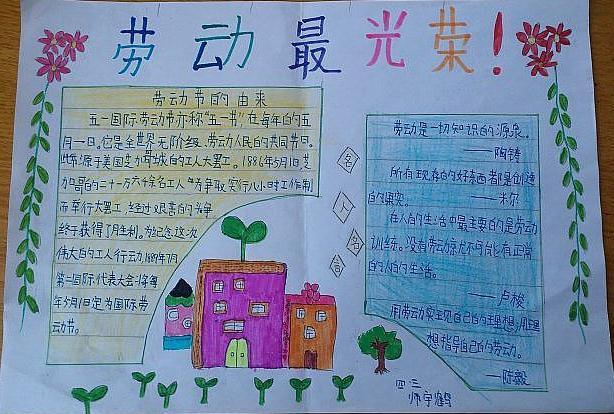 劳动最光荣!
劳动节的由来
五一国际劳动节亦称"五一节"在每年的五
月一日。它是全世界无阶级、劳动人民的共同节日。
此节源于美国芝加哥城的工人大罢工。1886年5月1日,芝
加哥的二十一万六千余名工人为争取实行八小时工作制
而举行大罢工,经过艰苦的斗争
终于获得了胜利。为纪念这次
伟大的工人行动,1889年7月
第二国际代表大会
年5月1日定为国际劳
动节。
名人名言
劳动是一切知识的源泉。
——陶铸
所有现存的好东西都是创造
的果实。——米尔
在人的生活中最主要的是劳动
训练。没有劳动就不可能有正常
的人的生活。
——卢梭
用劳动实现自己的理想,用理
想指导自己的劳动。
——陈毅
四三